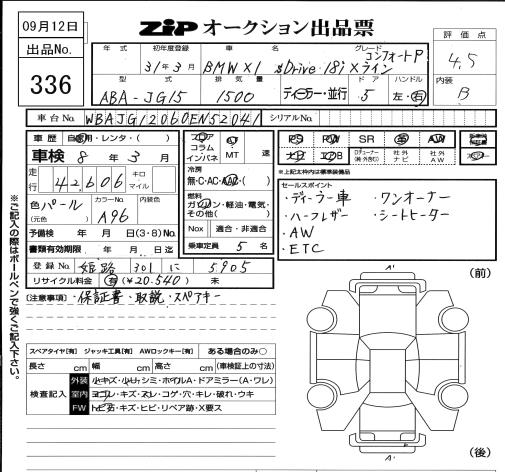 09月12日
出品No.
336
ZIP オークション出品票
評価点
4.5
内装
B
年式 初年度登録 車名 グレード
31年3月 BMW X1 sDrive 18i Xライン コンフォートP
型式 排気量 ドア ハンドル
ABA-JG15 1500 ディーラー・並行 5 左・右
車台No. WBAJG12060EN52041 シリアルNo.
車歴 自家用・レンタ・( )
車検 8年3月
走行 42,606 キロ マイル
色 パール カラーNo. 内装色
(元色) A96
予備検 年 月 日(3・8)No.
書類有効期限 年 月 日迄
登録No. 姫路 301 に 5905
リサイクル料金 有(¥20,540) 未
フロア
コラム
インパネ
AT
MT 速
冷房
無・C・AC・AAC・( )
燃料
ガソリン・軽油・電気・
その他( )
Nox 適合・非適合
乗車定員 5 名
PS PW SR AW
社外ナビ 社外AW
※上記太枠内は標準装備品
セールスポイント
・ディーラー車 ・ワンオーナー
・ハーフレザー ・シートヒーター
・AW
・ETC
[注意事項] ・保証書・取説・スペアキー
スペアタイヤ[有] ジャッキ工具[有] AWロックキー[有] ある場合のみ○
長さ cm 幅 cm 高さ cm (車検証上の寸法)
検査記入
外装 小キズ・小U,シミ・ホイルA・ドアミラー(A・ワレ)
室内 ヨゴレ・キズ・スレ・コゲ・穴・キレ・破れ・ウキ
FW トビ石・キズ・ヒビ・リペア跡・X要ス
A'
(前)
A'
(後)
※ご記入の際はボールペンで強くご記入下さい。